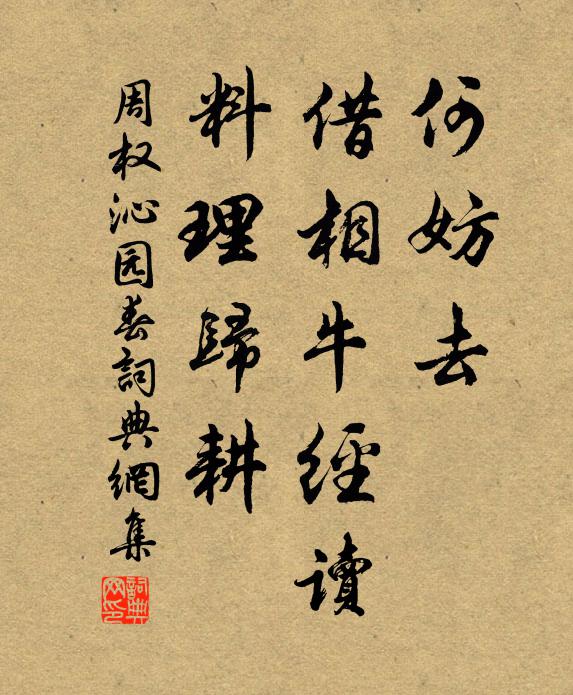 何妨去
借相牛經讀
料理歸耕
周权沁园春詞典網集
詞典网印